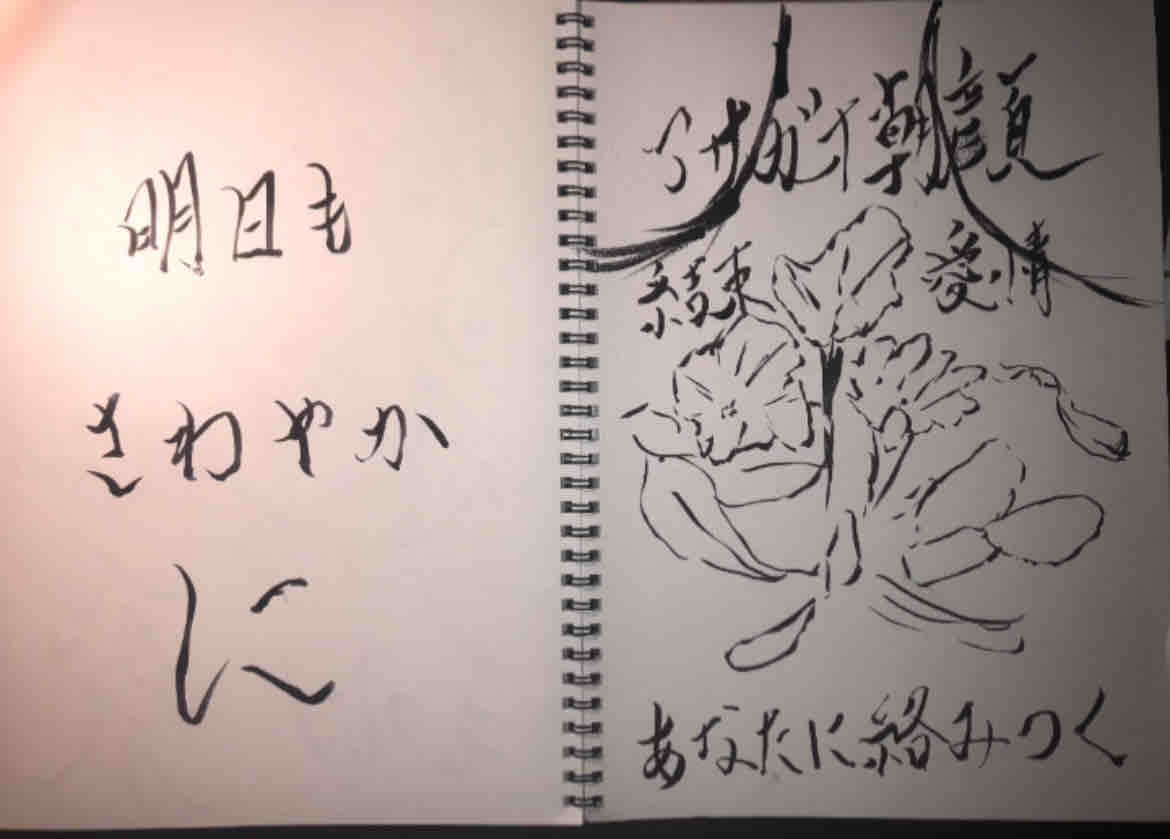 明日も
さわやか
に
アサガオ 朝顔
結束 愛情
あなたに絡みつく